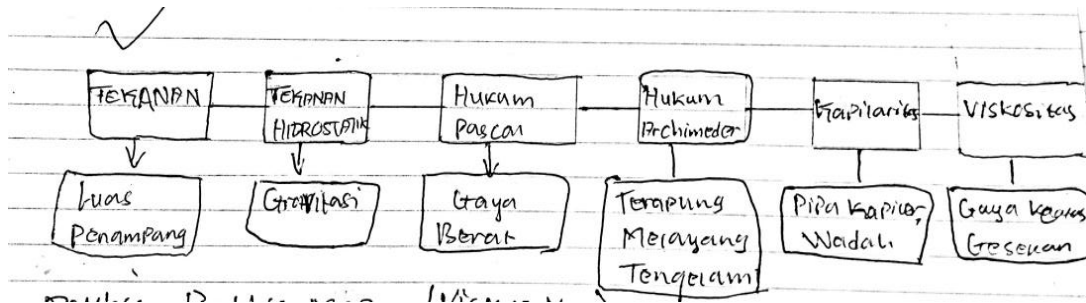 TEKANAN
TEKANAN
HIDROSTATIK
Hukum
Pascal
Hukum
Archimedes
Kapilaritas
Viskositas
Luas
Penampang
Gravitasi
Gaya
Berat
Terapung
Melayang
Tenggelam
Pipa Kapiler,
Wadah
Gaya
Gesekan